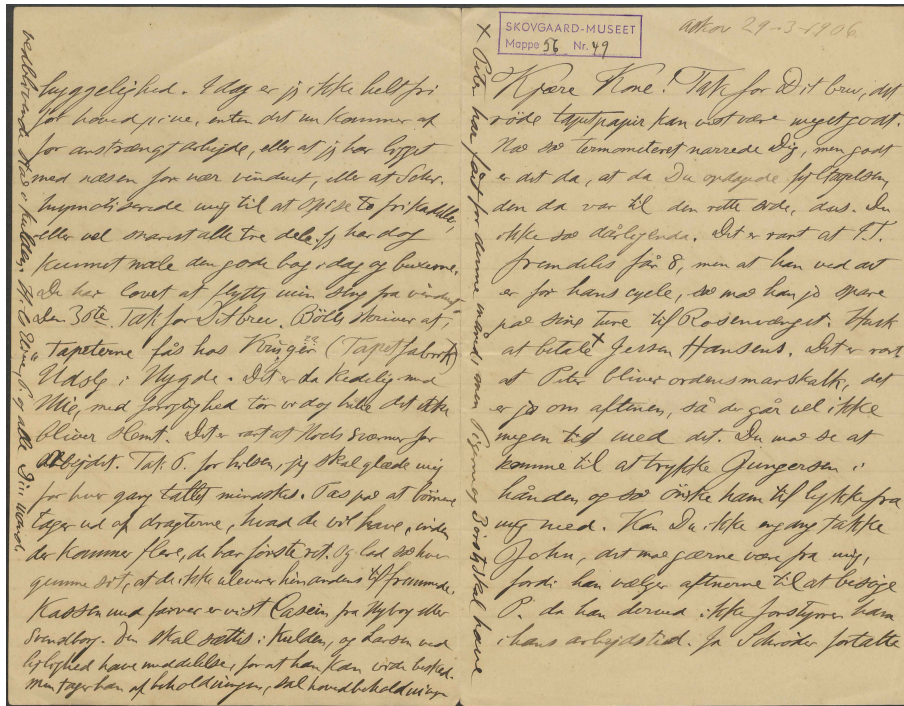 SKOVGAARD-MUSEET
Mappe 56 Nr. 49
Askov 29-3-1906
Kjære Kone! Tak for Dit brev, det
røde tapetpapir kan vist være meget godt.
Naa saa termometeret narrede Dig, men godt
er det da, at da Du opdagede
den da var til den rette side, Du
ikke saa daarligenda. Det er rart at
fremdeles får 8, men at han ved det
er for hans cycle, saa maa han jo spare
paa sine ture til Rosenvænget. Husk
at betale x Jessen Hansens. Det er rart
at Peter bliver ordensmarskalk, det
er jo om aftenen, så der går vel ikke
megen tid med det. Du maa se at
komme til at trykke Jungersen i
hånden og saa ønske ham til lykke fra
mig med. Kan Du ikke engang takke
John, det maa gærne være fra mig,
fordi han vælger aftnerne til at besøge
P. da han derved ikke forstyrrer ham
i hans arbejdstid. Ja Schrøder fortalte
x Peter har fået for denne måned, men skal have
hyggelighed. I dag er jeg ikke helt fri
for hovedpine, enten det nu kommer af
for anstrængt arbejde, eller at jeg har ligget
med næsen for nær vinduet, eller at Schr.
hypnotiserede mig til at spise to frikadeller,
eller vel snarest alle tre dele. Jeg har dog
kunnet male den gode bog i dag og buxerne.
De har lovet at flytte min seng fra vinduet
Den 30te. Tak for Dit brev. Bølle skriver at,
"Tapeterne fås hos Krüger (Tapetfabrik)
Udslg i Nygde. Det er da kedelig med
Mie, med forsigtighed tør vi dog håbe det ikke
bliver slemt. Det er rart at sværmer for
arbejdet. Tak P. for hilsen, jeg skal glæde mig
for hver gang tallet mindskes. Pas paa at børnene
tager ud af dragterne, hvad de vil have, inden
der kommer flere, de har første ret. Og lad saa hver
gemme sit, at de ikke uleverer hinandens til fremmede.
Kassen med farver er vist Casein, fra Nyborg eller
Svendborg. Den skal sættes i kulden, og Larsen ved
lejlighed have meddelelse, for at han kan vide besked.
men tager han af beholdningen, skal hovedbeholdningen
vedblivende stå i kulden. alle Din mand.